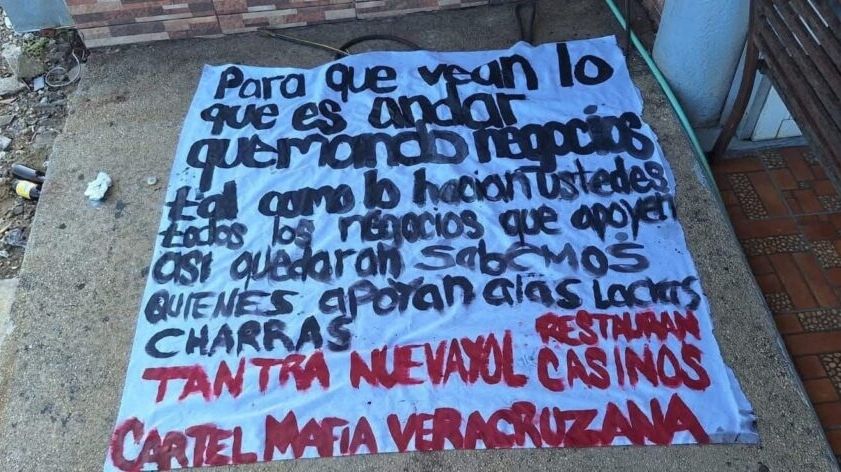 Para que vean lo
que es andar
quemando negocios
tal como lo hacian Ustedes
todos los negocios que apoyen
asi quedaran sabemos
QUIENES apoyan a las Lacras
CHARRAS
RESTAURAN
TANTRA NUEVAYOL CASINOS
CARTEL MAFIA VERACRUZANA